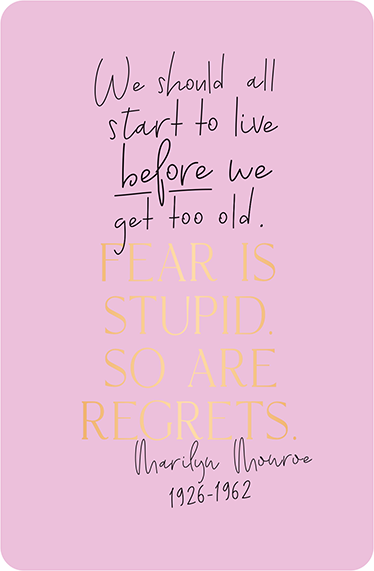 We should all
start to live
before we
get too old.
FEAR IS
STUPID.
SO ARE
REGRETS.
Marilyn Monroe
1926-1962